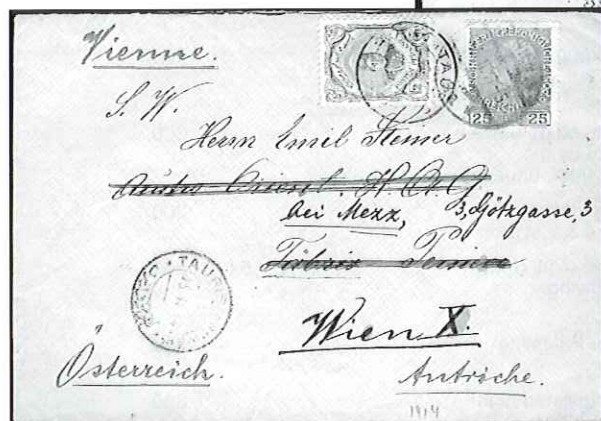 Vienne.
S. W.
Herrn Emil Steiner
Austro-Orient. H. A. G
bei Mezz, 3, Götzgasse, 3
Täbris Persien
Wien X.
Österreich. Autriche.
1914
25 25
TAURIS